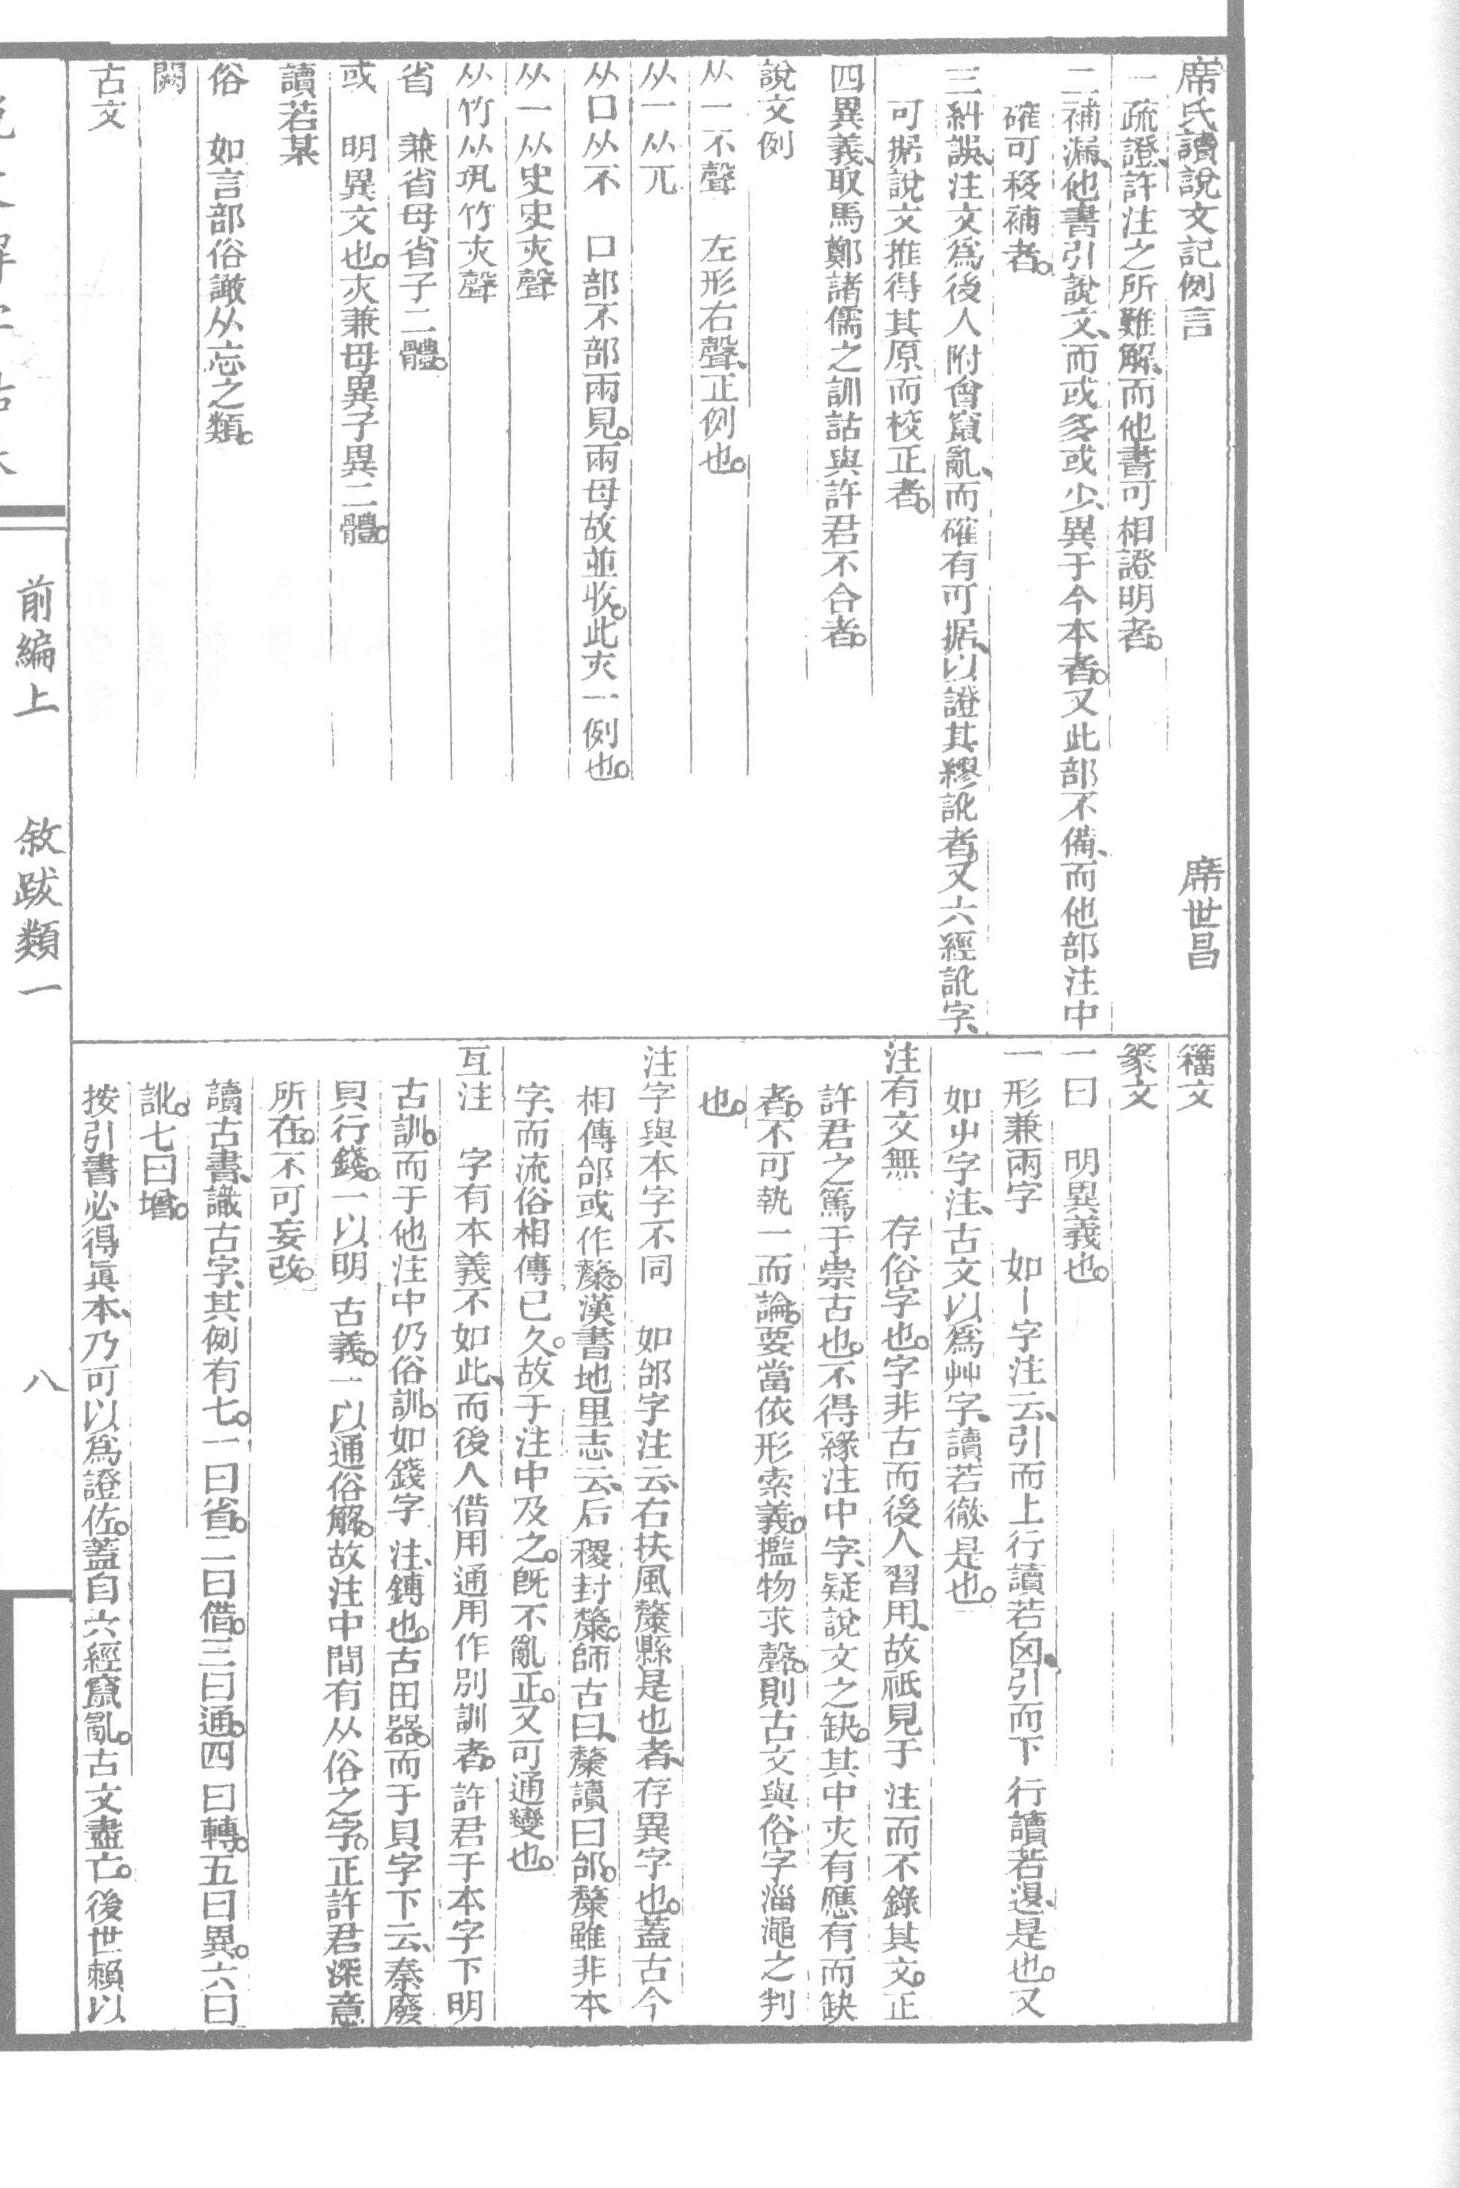 席氏讀說文記例言　席世昌
一疏證、許注之所難解、而他書可相證明者。
二補漏、他書引說文、而或多或少、異于今本者。又此部不備、而他部注中
確可移補者。
三糾誤、注文爲後人附會竄亂、而確有可据、以證其繆訛者。又六經訛字、
可据說文推得其原而校正者。
四異義、取馬鄭諸儒之訓詁與許君不合者。
說文例
从一不聲　左形右聲、正例也。
从一从兀
从口从不　口部不部兩見。兩母故並收。此亦一例也。
从一从史史亦聲
从竹从巩竹亦聲
省　兼省母省子二體。
或　明異文也。亦兼母異子異二體。
讀若某
俗　如言部俗譀从忘之類。
闕
古文
籒文
篆文
一曰　明異義也。
一形兼兩字　如丨字注云、引而上行讀若囟、引而下行讀若𨓤、是也。又
如屮字注、古文以爲艸字、讀若徹、是也。
注有文無　存俗字也。字非古而後人習用、故祇見于注而不錄其文。正
許君之篤于崇古也。不得緣注中字、疑說文之缺。其中亦有應有而缺
者。不可執一而論。要當依形索義。攬物求聲。則古文與俗字淄澠之判
也。
注字與本字不同　如邰字注云、右扶風斄縣是也者、存異字也。蓋古今
相傳邰或作斄。漢書地里志云、后稷封斄。師古曰、斄讀曰邰。斄雖非本
字、而流俗相傳已久。故于注中及之。旣不亂正。又可通變也。
互注　字有本義不如此、而後人借用通用作別訓者。許君于本字下明
古訓。而于他注中仍俗訓。如錢字注、錢也。古田器。而于貝字下云、秦廢
貝行錢。一以明古義。一以通俗解。故注中間有从俗之字。正許君深意
所在。不可妄改。
讀古書、識古字、其例有七。一曰省。二曰借。三曰通。四曰轉。五曰異。六曰
訛。七曰增。
按引書必得眞本、乃可以爲證佐。蓋自六經竄亂。古文盡亡。後世賴以
前編上　敘跋類一
八